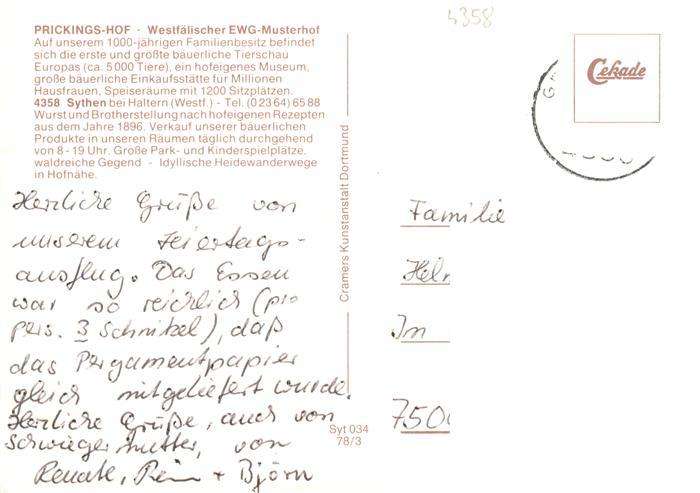 4358
PRICKINGS-HOF · Westfälischer EWG-Musterhof
Auf unserem 1000-jährigen Familienbesitz befindet
sich die erste und größte bäuerliche Tierschau
Europas (ca. 5000 Tiere), ein hofeigenes Museum,
große bäuerliche Einkaufsstätte für Millionen
Hausfrauen, Speiseräume mit 1200 Sitzplätzen.
4358 Sythen bei Haltern (Westf.) - Tel. (0 23 64) 65 88
Wurst und Brotherstellung nach hofeigenen Rezepten
aus dem Jahre 1896. Verkauf unserer bäuerlichen
Produkte in unseren Räumen täglich durchgehend
von 8 - 19 Uhr. Große Park- und Kinderspielplätze,
waldreiche Gegend - Idyllische Heidewanderwege
in Hofnähe.
Cekade
Herzliche Grüße von
unserem Feiertags-
ausflug. Das Essen
war so reichlich (pro
Pers. 3 Schnitzel), daß
das Pergamentpapier
gleich mitgeliefert wurde.
Herzliche Grüße, auch von
Schwiegermutter, von
Renate, + Björn
Cramers Kunstanstalt Dortmund
Syt 034
78/3
Familie
Im
750